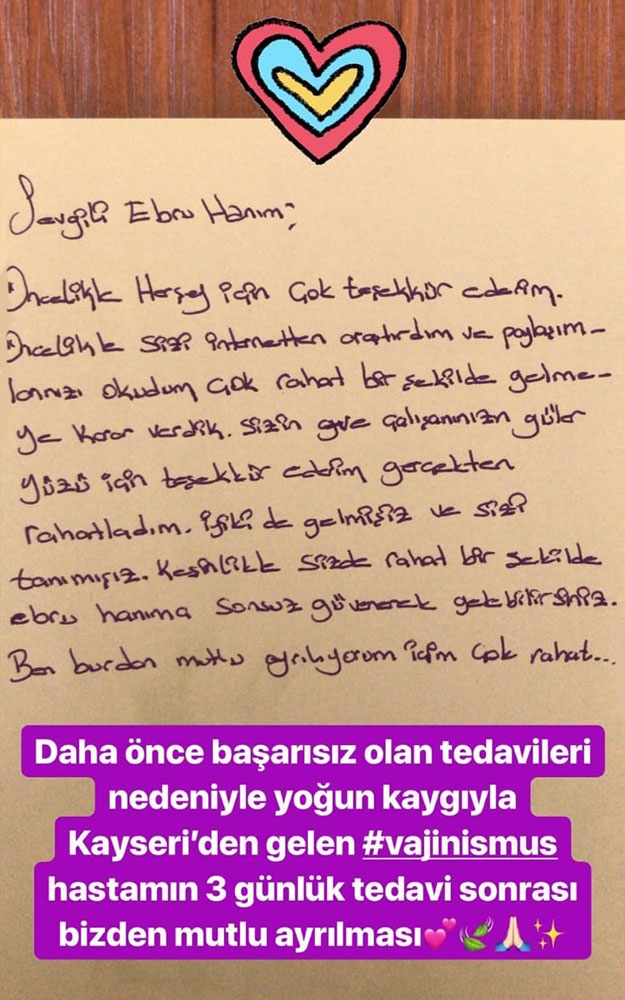 Sevgili Ebru Hanım;
Öncelikle Herşey için Çok teşekkür ederim.
Öncelikle sizi internetten araştırdım ve paylaşım-
larınızı okudum çok rahat bir şekilde gelme-
ye karar verdik. Sizin ve çalışanınızın güler
yüzü için teşekkür ederim gerçekten
rahatladım. iyiki de gelmişiz ve sizi
tanımışız. Kesinlikle sizde rahat bir şekilde
ebru hanıma sonsuz güvenerek gelebilirsiniz.
Ben burdan mutlu ayrılıyorum içim çok rahat...
Daha önce başarısız olan tedavileri
nedeniyle yoğun kaygıyla
Kayseri’den gelen #vajinismus
hastamın 3 günlük tedavi sonrası
bizden mutlu ayrılması💕🍃🙏🏻✨